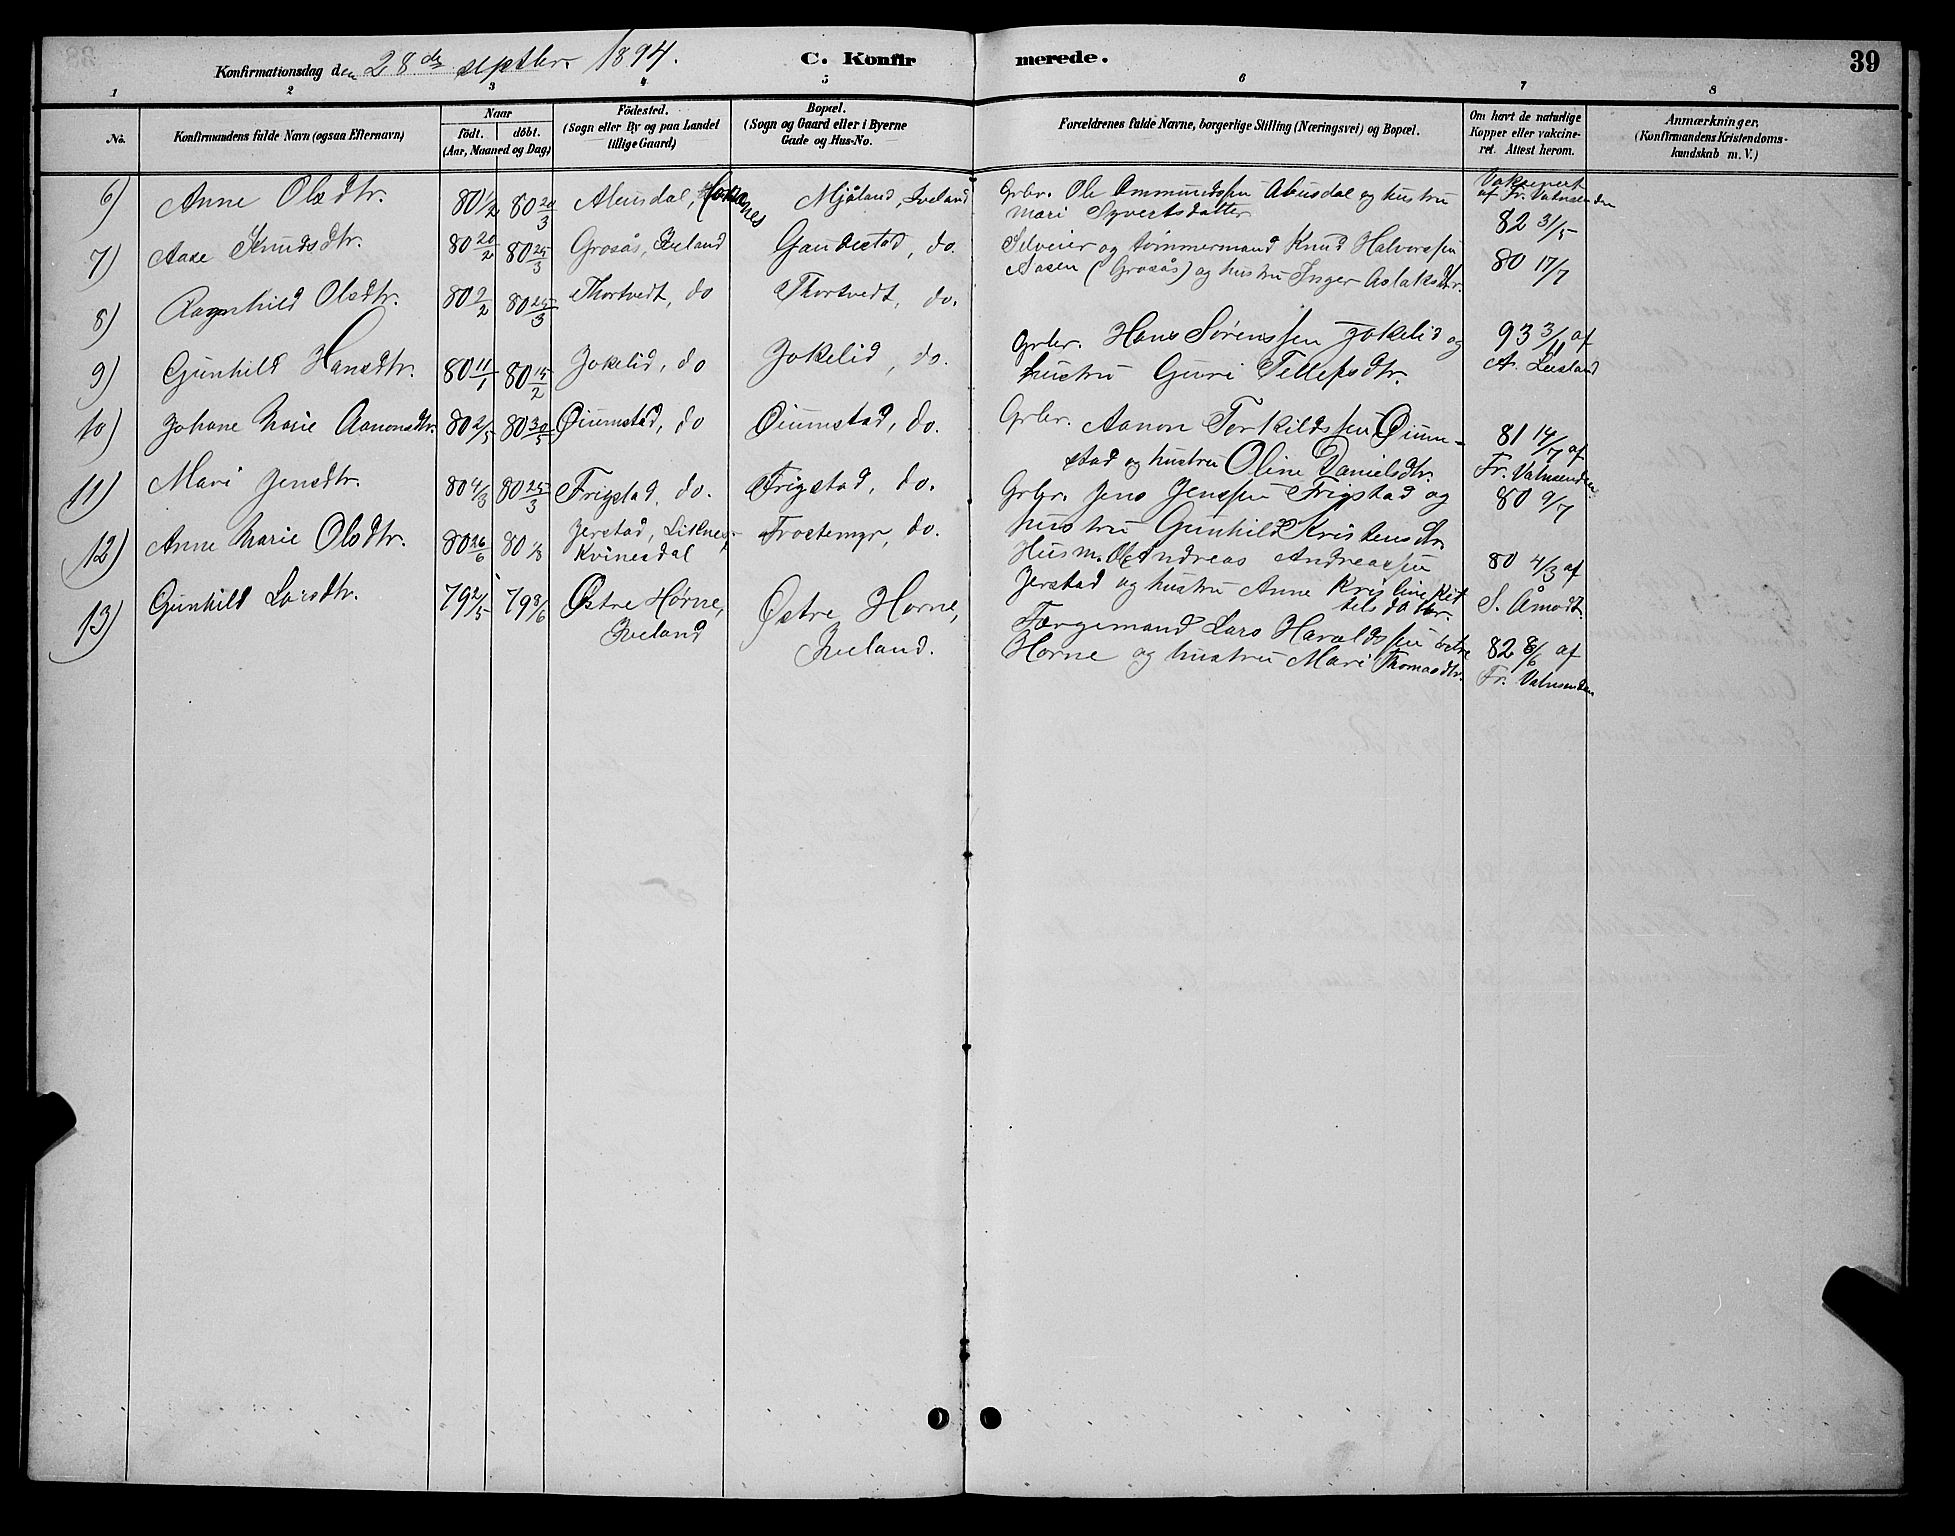 Konfirmationsdag den 28de septbr. 1894.
C. Konfirmerede.
39
1 2 3 4 5 6 7 8
No.
Konfirmandens fulde Navn (ogsaa Efternavn)
Naar
födt. döbt.
(Aar, Maaned og Dag)
Födested.
(Sogn eller By og paa Landet
tillige Gaard)
Bopæl.
(Sogn og Gaard eller i Byerne
Gade og Hus-No.
Forældrenes fulde Navne, borgerlige Stilling (Næringsvei) og Bopæl.
Om havt de naturlige
Kopper eller vakcine-
ret. Attest herom.
Anmærkninger,
(Konfirmandens Kristendoms-
kundskab m. V.)
6) Anne Olsdtr. 80 1/2 80 20/3 Abusdal, Mjåland, Iveland
Grbr. Ole Ommundssen Abusdal og hustru
Mari Syvertsdatter
Vaksinert
af Fr. Vatnsenden
82 31/5
7) Aase Knudsdtr. 80 20/2 80 25/3 Grosås, Iveland Gaudestad, do.
Selveier og tømmermand Knud Halvorssen
Aasen (Grosås) og hustru Inger Aslaksdtr.
80 17/7
8) Ragnhild Olsdtr. 80 2/2 80 25/3 Thortvedt, do Thortvedt, do.
9) Gunhild Hansdtr. 80 11/1 80 15/2 Jokelid, do Jokelid, do.
Grbr. Hans Sørenssen Jokelid og
hustru Guri Tellefsdtr.
93 3/11 af
A. Liestand
10) Johane Marie Aanonsdtr. 80 2/5 80 30/5 Øiumstad, do Øiumstad, do.
Grbr. Aanon Torkildssen Øium-
stad og hustru Oline Danielsdtr.
81 14/7 af
Fr. Vatnsenden
11) Mari Jensdtr. 80 4/3 80 25/3 Frigstad, do. Frigstad, do.
Grbr. Jens Jenssen Frigstad og
hustru Gunhild Kristensdtr
80 9/7
12) Anne Marie Olsdtr. 80 26/6 80 1/8 Jerstad, Liknes,
Kvinesdal
Trostemyr, do.
Husm. Ole Andreas Andreassen
Jerstad og hustru Anne Kristine Ket
telsdatter.
80 4/3 af
S. Åmodt.
13) Gunhild Larsdtr. 79 2/5 79 8/6 Østre Horne,
Iveland
Østre Horne,
Iveland.
Færgemand Lars Haraldssen østre
Horne og hustru Mari Thomasdtr.
82 8/6 af
Fr. Vatnsenden